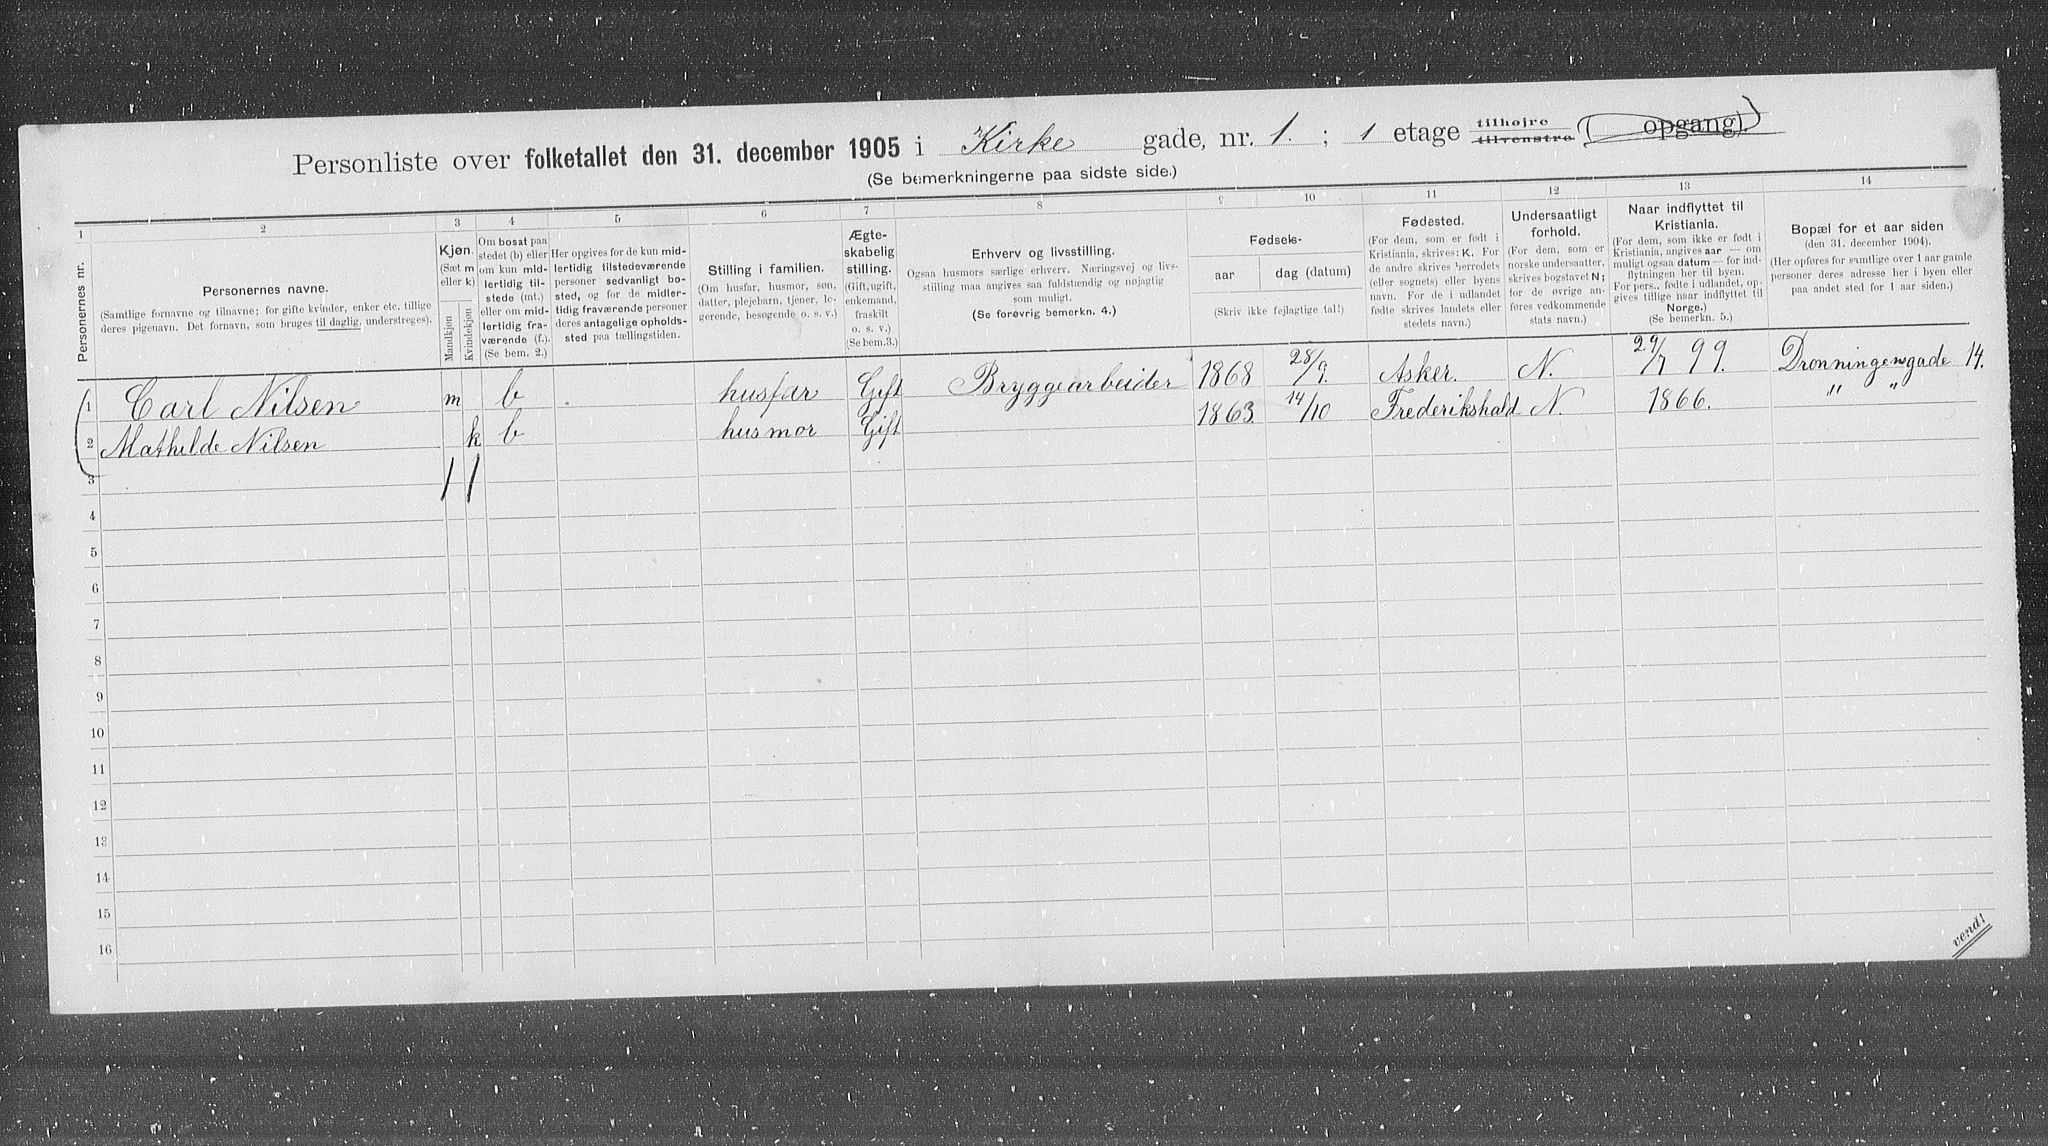 Personliste over folketallet den 31. december 1905 i Kirke gade, nr. 1. ; 1 etage tilhøjre tilvenstre ( opgang).
(Se bemerkningerne paa sidste side.)
1 2 3 4 5 6 7 8 9 10 11 12 13 14
Personernes nr.
Personernes navne.
(Samtlige fornavne og tilnavne; for gifte kvinder, enker etc. tillige
deres pigenavn. Det fornavn, som bruges til daglig, understreges).
Kjøn.
(Sæt m
eller k)
Mandkjøn
Kvindekjøn
Om bosat paa
stedet (b) eller
om kun mid-
lertidig til-
stede (mt.)
eller om mid-
lertidig fra-
værende (f.).
(Se bem. 2.)
Her opgives for de kun mid-
lertidig tilstedeværende
personer sedvanligt bo-
sted, og for de midler-
tidig fraværende personer
deres antagelige opholds-
sted paa tællingstiden.
Stilling i familien.
(Om husfar, husmor, søn,
datter, plejebarn, tjener, lo-
gerende, besøgende o. s. v.)
Ægte-
skabelig
stilling.
(Gift, ugift,
enkemand,
fraskilt
o. s. v.)
(Se bem. 3.)
Erhverv og livsstilling.
Ogsaa husmors særlige erhverv. Næringsvej og livs-
stilling maa angives saa fuldstændig og nøjagtig
som muligt.
(Se forøvrig bemerkn. 4.)
Fødsels-
aar dag (datum)
(Skriv ikke fejlagtige tal!)
Fødested.
(For dem, som er født i
Kristiania, skrives: K. For
de andre skrives herredets
(eller sognets) eller byens
navn. For de i udlandet
fødte skrives landets eller
stedets navn.)
Undersaatligt
forhold.
(For dem, som er
norske undersaatter,
skrives bogstavet N;
for de øvrige an-
føres vedkommende
stats navn.)
Naar indflyttet til
Kristiania.
(For dem, som ikke er født i
Kristiania, angives aar — om
muligt ogsaa datum — for ind-
flytningen her til byen.
For pers., fødte i udlandet, op-
gives tillige naar indflyttet til
Norge.)
(Se bemerkn. 5.)
Bopæl for et aar siden
(den 31. december 1904).
(Her opføres for samtlige over 1 aar gamle
personer deres adresse her i byen eller
paa andet sted for 1 aar siden.)
1 Carl Nilsen m b husfar Gift Bryggearbeider 1868 28/9. Asker. N. 29/7 99. Dronningensgade 14.
2 Mathilde Nilsen k b husmor Gift 1863 14/10 Frederikshald N. 1866. " "
3 1 1
4
5
6
7
8
9
10
11
12
13
14
15
16
vend!